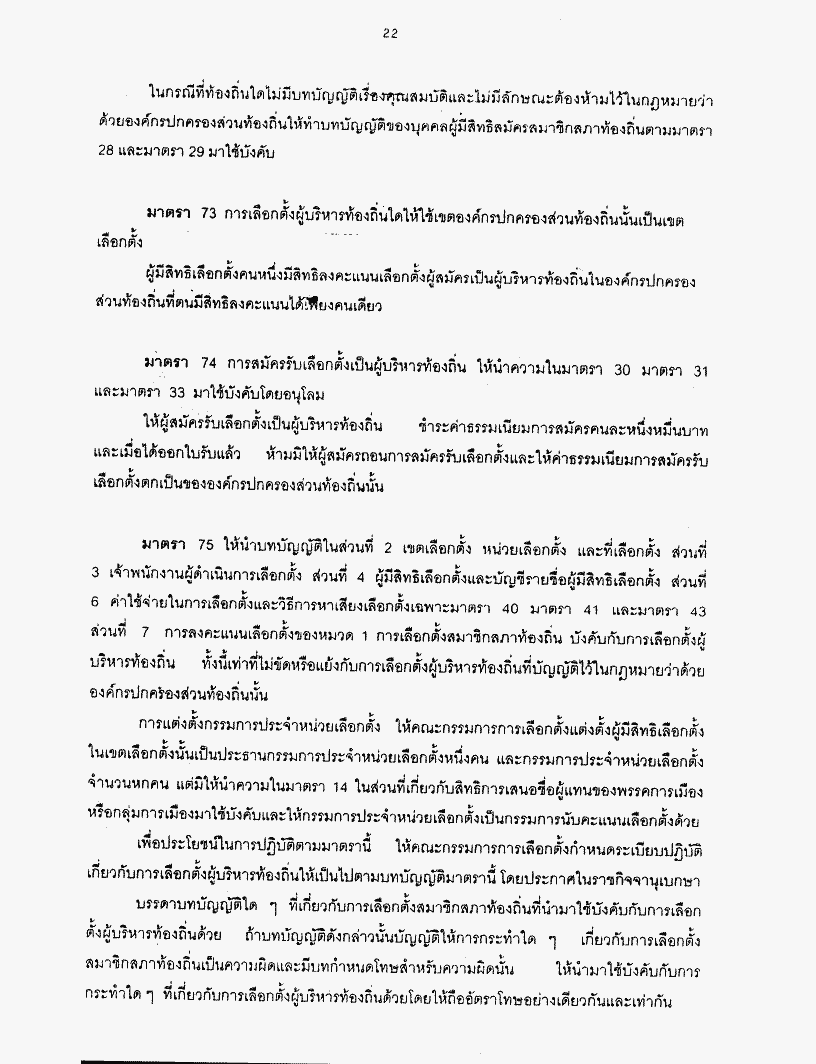 22
ในกรณีที่ท้องถิ่นใดไม่มีบทบัญญัติเรื่องคุณสมบัติและไม่มีลักษณะต้องห้ามไว้ในกฎหมายว่า
ด้วยองค์กรปกครองส่วนท้องถิ่นให้ทำบทบัญญัติของบุคคลผู้มีสิทธิสมัครสมาชิกสภาท้องถิ่นตามมาตรา
28 และมาตรา 29 มาใช้บังคับ
มาตรา 73 การเลือกตั้งผู้บริหารท้องถิ่นใดให้ใช้เขตองค์กรปกครองส่วนท้องถิ่นนั้นเป็นเขต
เลือกตั้ง
ผู้มีสิทธิเลือกตั้งคนหนึ่งมีสิทธิลงคะแนนเลือกตั้งผู้สมัครเป็นผู้บริหารท้องถิ่นในองค์กรปกครอง
ส่วนท้องถิ่นที่ตนมีสิทธิลงคะแนนได้เพียงคนเดียว
มาตรา 74 การสมัครรับเลือกตั้งเป็นผู้บริหารท้องถิ่น ให้นำความในมาตรา 30 มาตรา 31
และมาตรา 33 มาใช้บังคับโดยอนุโลม
ให้ผู้สมัครรับเลือกตั้งเป็นผู้บริหารท้องถิ่น ชำระค่าธรรมเนียมการสมัครคนละหนึ่งหมื่นบาท
และเมื่อได้ออกใบรับแล้ว ห้ามมิให้ผู้สมัครถอนการสมัครรับเลือกตั้งและให้ค่าธรรมเนียมการสมัครรับ
เลือกตั้งตกเป็นขององค์กรปกครองส่วนท้องถิ่นนั้น
มาตรา 75 ให้นำบทบัญญัติในส่วนที่ 2 เขตเลือกตั้ง หน่วยเลือกตั้ง และที่เลือกตั้ง ส่วนที่
3 เจ้าพนักงานผู้ดำเนินการเลือกตั้ง ส่วนที่ 4 ผู้มีสิทธิเลือกตั้งและบัญชีรายชื่อผู้มีสิทธิเลือกตั้ง ส่วนที่
6 ค่าใช้จ่ายในการเลือกตั้งและวิธีการหาเสียงเลือกตั้งเฉพาะมาตรา 40 มาตรา 41 และมาตรา 43
ส่วนที่ 7 การลงคะแนนเลือกตั้งของหมวด 1 การเลือกตั้งสมาชิกสภาท้องถิ่น บังคับกับการเลือกตั้งผู้
บริหารท้องถิ่น ทั้งนี้เท่าที่ไม่ขัดหรือแย้งกับการเลือกตั้งผู้บริหารท้องถิ่นที่บัญญัติไว้ในกฎหมายว่าด้วย
องค์กรปกครองส่วนท้องถิ่นนั้น
การแต่งตั้งกรรมการประจำหน่วยเลือกตั้ง ให้คณะกรรมการการเลือกตั้งแต่งตั้งผู้มีสิทธิเลือกตั้ง
ในเขตเลือกตั้งนั้นเป็นประธานกรรมการประจำหน่วยเลือกตั้งหนึ่งคน และกรรมการประจำหน่วยเลือกตั้ง
จำนวนหกคน แต่มิให้นำความในมาตรา 14 ในส่วนที่เกี่ยวกับสิทธิการเสนอชื่อผู้แทนของพรรคการเมือง
หรือกลุ่มการเมืองมาใช้บังคับและให้กรรมการประจำหน่วยเลือกตั้งเป็นกรรมการนับคะแนนเลือกตั้งด้วย
เพื่อประโยชน์ในการปฏิบัติตามมาตรานี้ ให้คณะกรรมการการเลือกตั้งกำหนดระเบียบปฏิบัติ
เกี่ยวกับการเลือกตั้งผู้บริหารท้องถิ่นให้เป็นไปตามบทบัญญัติมาตรานี้ โดยประกาศในราชกิจจานุเบกษา
บรรดาบทบัญญัติใด ๆ ที่เกี่ยวกับการเลือกตั้งสมาชิกสภาท้องถิ่นที่นำมาใช้บังคับกับการเลือก
ตั้งผู้บริหารท้องถิ่นด้วย ถ้าบทบัญญัติดังกล่าวนั้นบัญญัติให้การกระทำใด ๆ เกี่ยวกับการเลือกตั้ง
สมาชิกสภาท้องถิ่นเป็นความผิดและมีบทกำหนดโทษสำหรับความผิดนั้น ให้นำมาใช้บังคับกับการ
กระทำใด ๆ ที่เกี่ยวกับการเลือกตั้งผู้บริหารท้องถิ่นด้วยโดยให้ถืออัตราโทษอย่างเดียวกันและเท่ากัน